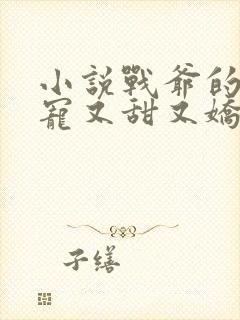 小說戰爺的
寵又甜又嬌
子繕